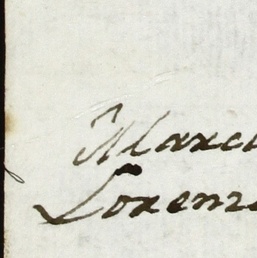 Marci
Lorenz